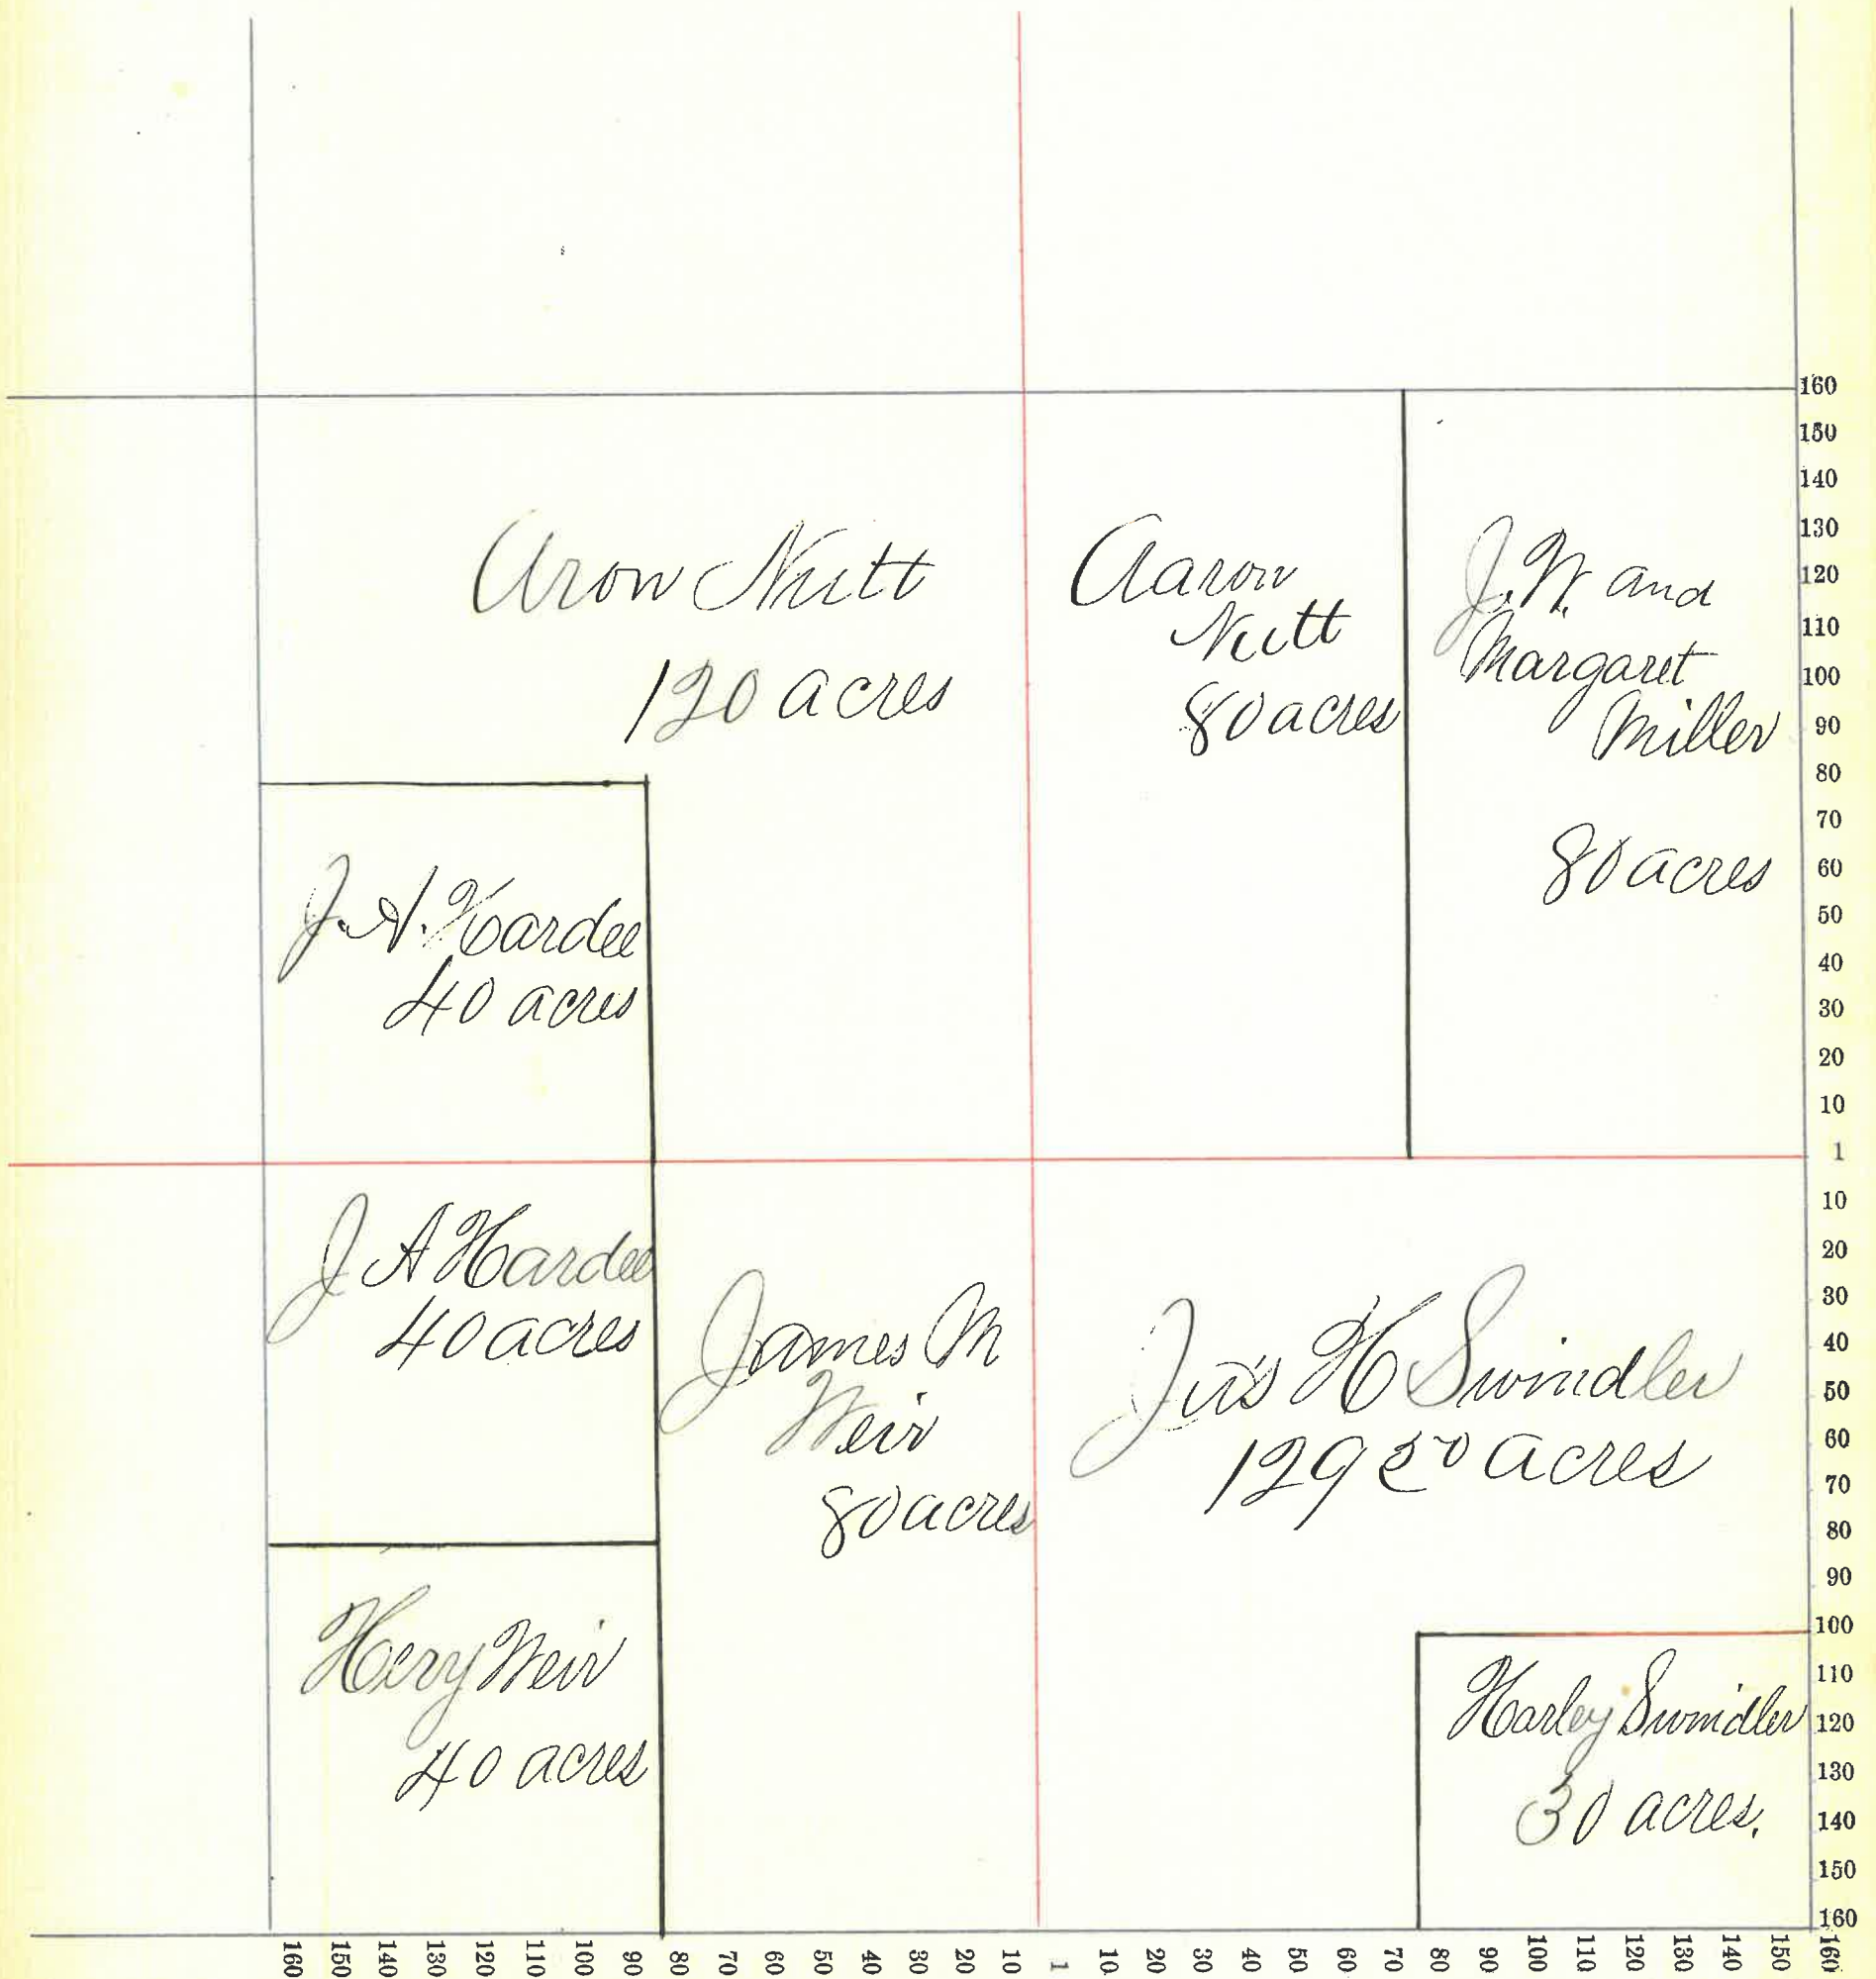 Aron Nutt
120 acres
Aaron
Nutt
80 acres
J. W. and
Margaret
Miller
80 acres
J. A. Hardee
40 acres
J A Hardee
40 acres
James M
Weir
80 acres
H Swindler
129 50 acres
Weir
40 acres
Harley Swindler
30 acres.
160
150
140
130
120
110
100
90
80
70
60
50
40
30
20
10
1
10
20
30
40
50
60
70
80
90
100
110
120
130
140
150
160
160 150 140 130 120 110 100 90 80 70 60 50 40 30 20 10 1 10 20 30 40 50 60 70 80 90 100 110 120 130 140 150 160